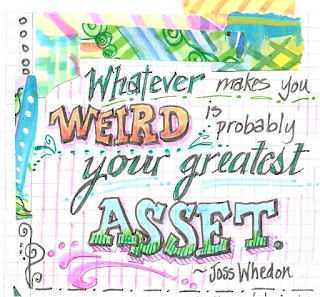 Whatever makes you
WEIRD is probably
your greatest
ASSET.
~ Joss Whedon